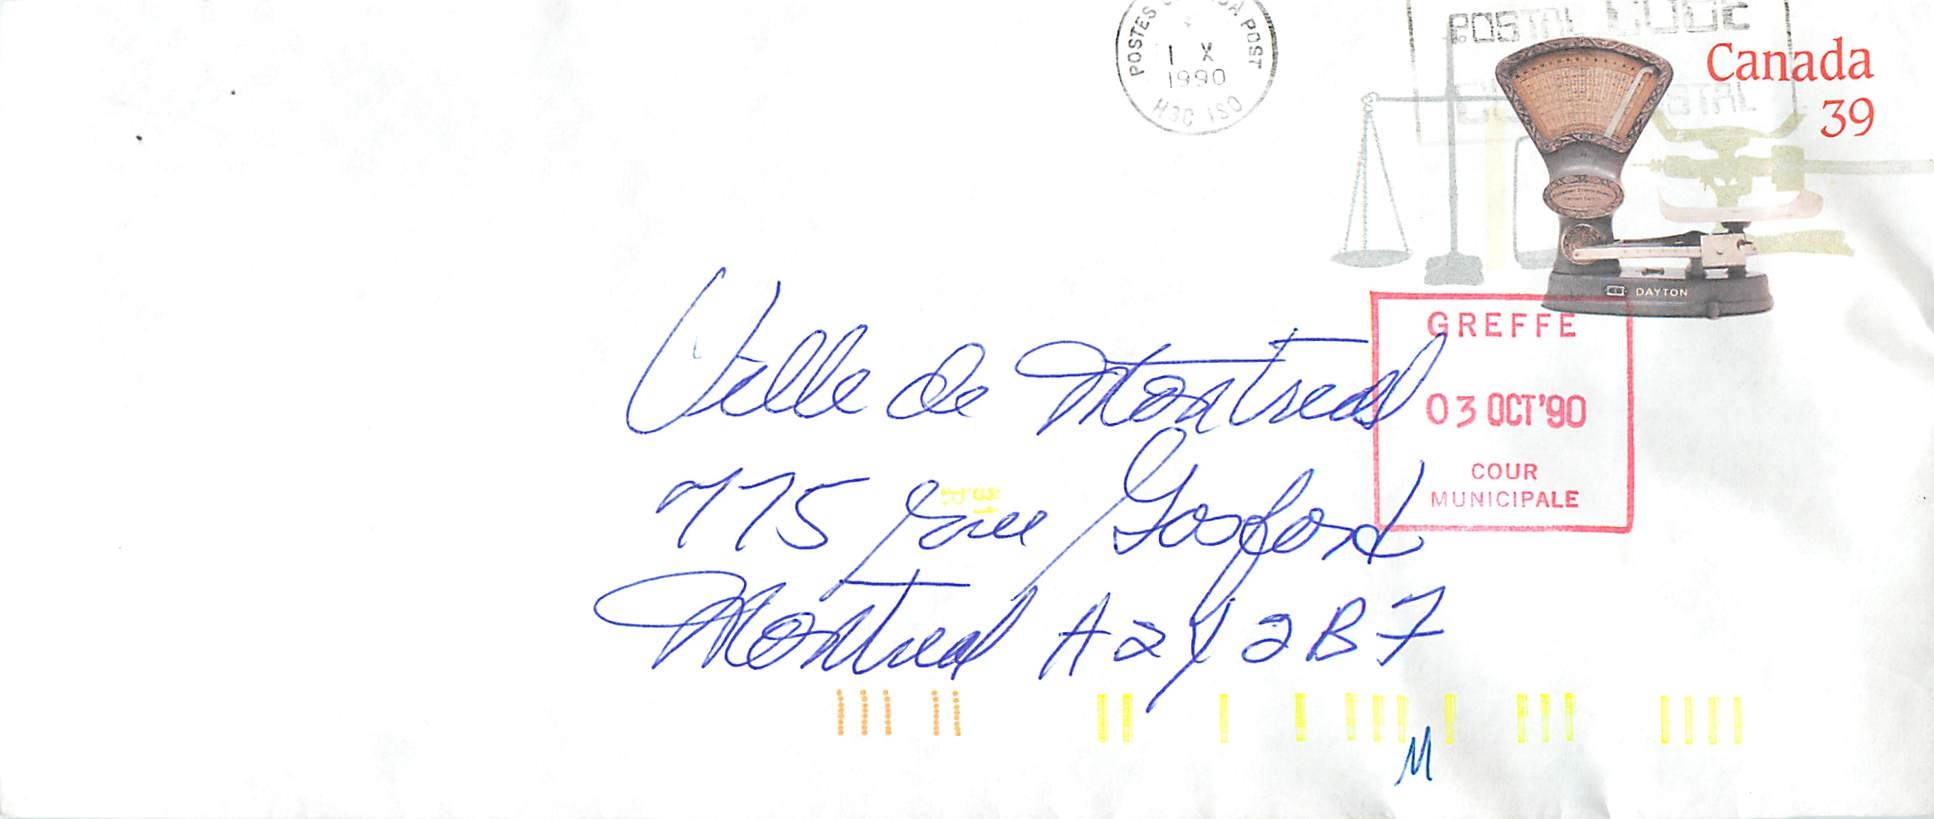 POSTES CANADA POST
1 X
1990
H3C 1S0
POSTAL CODE
CODE POSTAL
Canada
39
DAYTON
GREFFE
03 OCT'90
COUR
MUNICIPALE
Ville de Montreal
775 rue Gosford
Montreal A2Y2B7
M